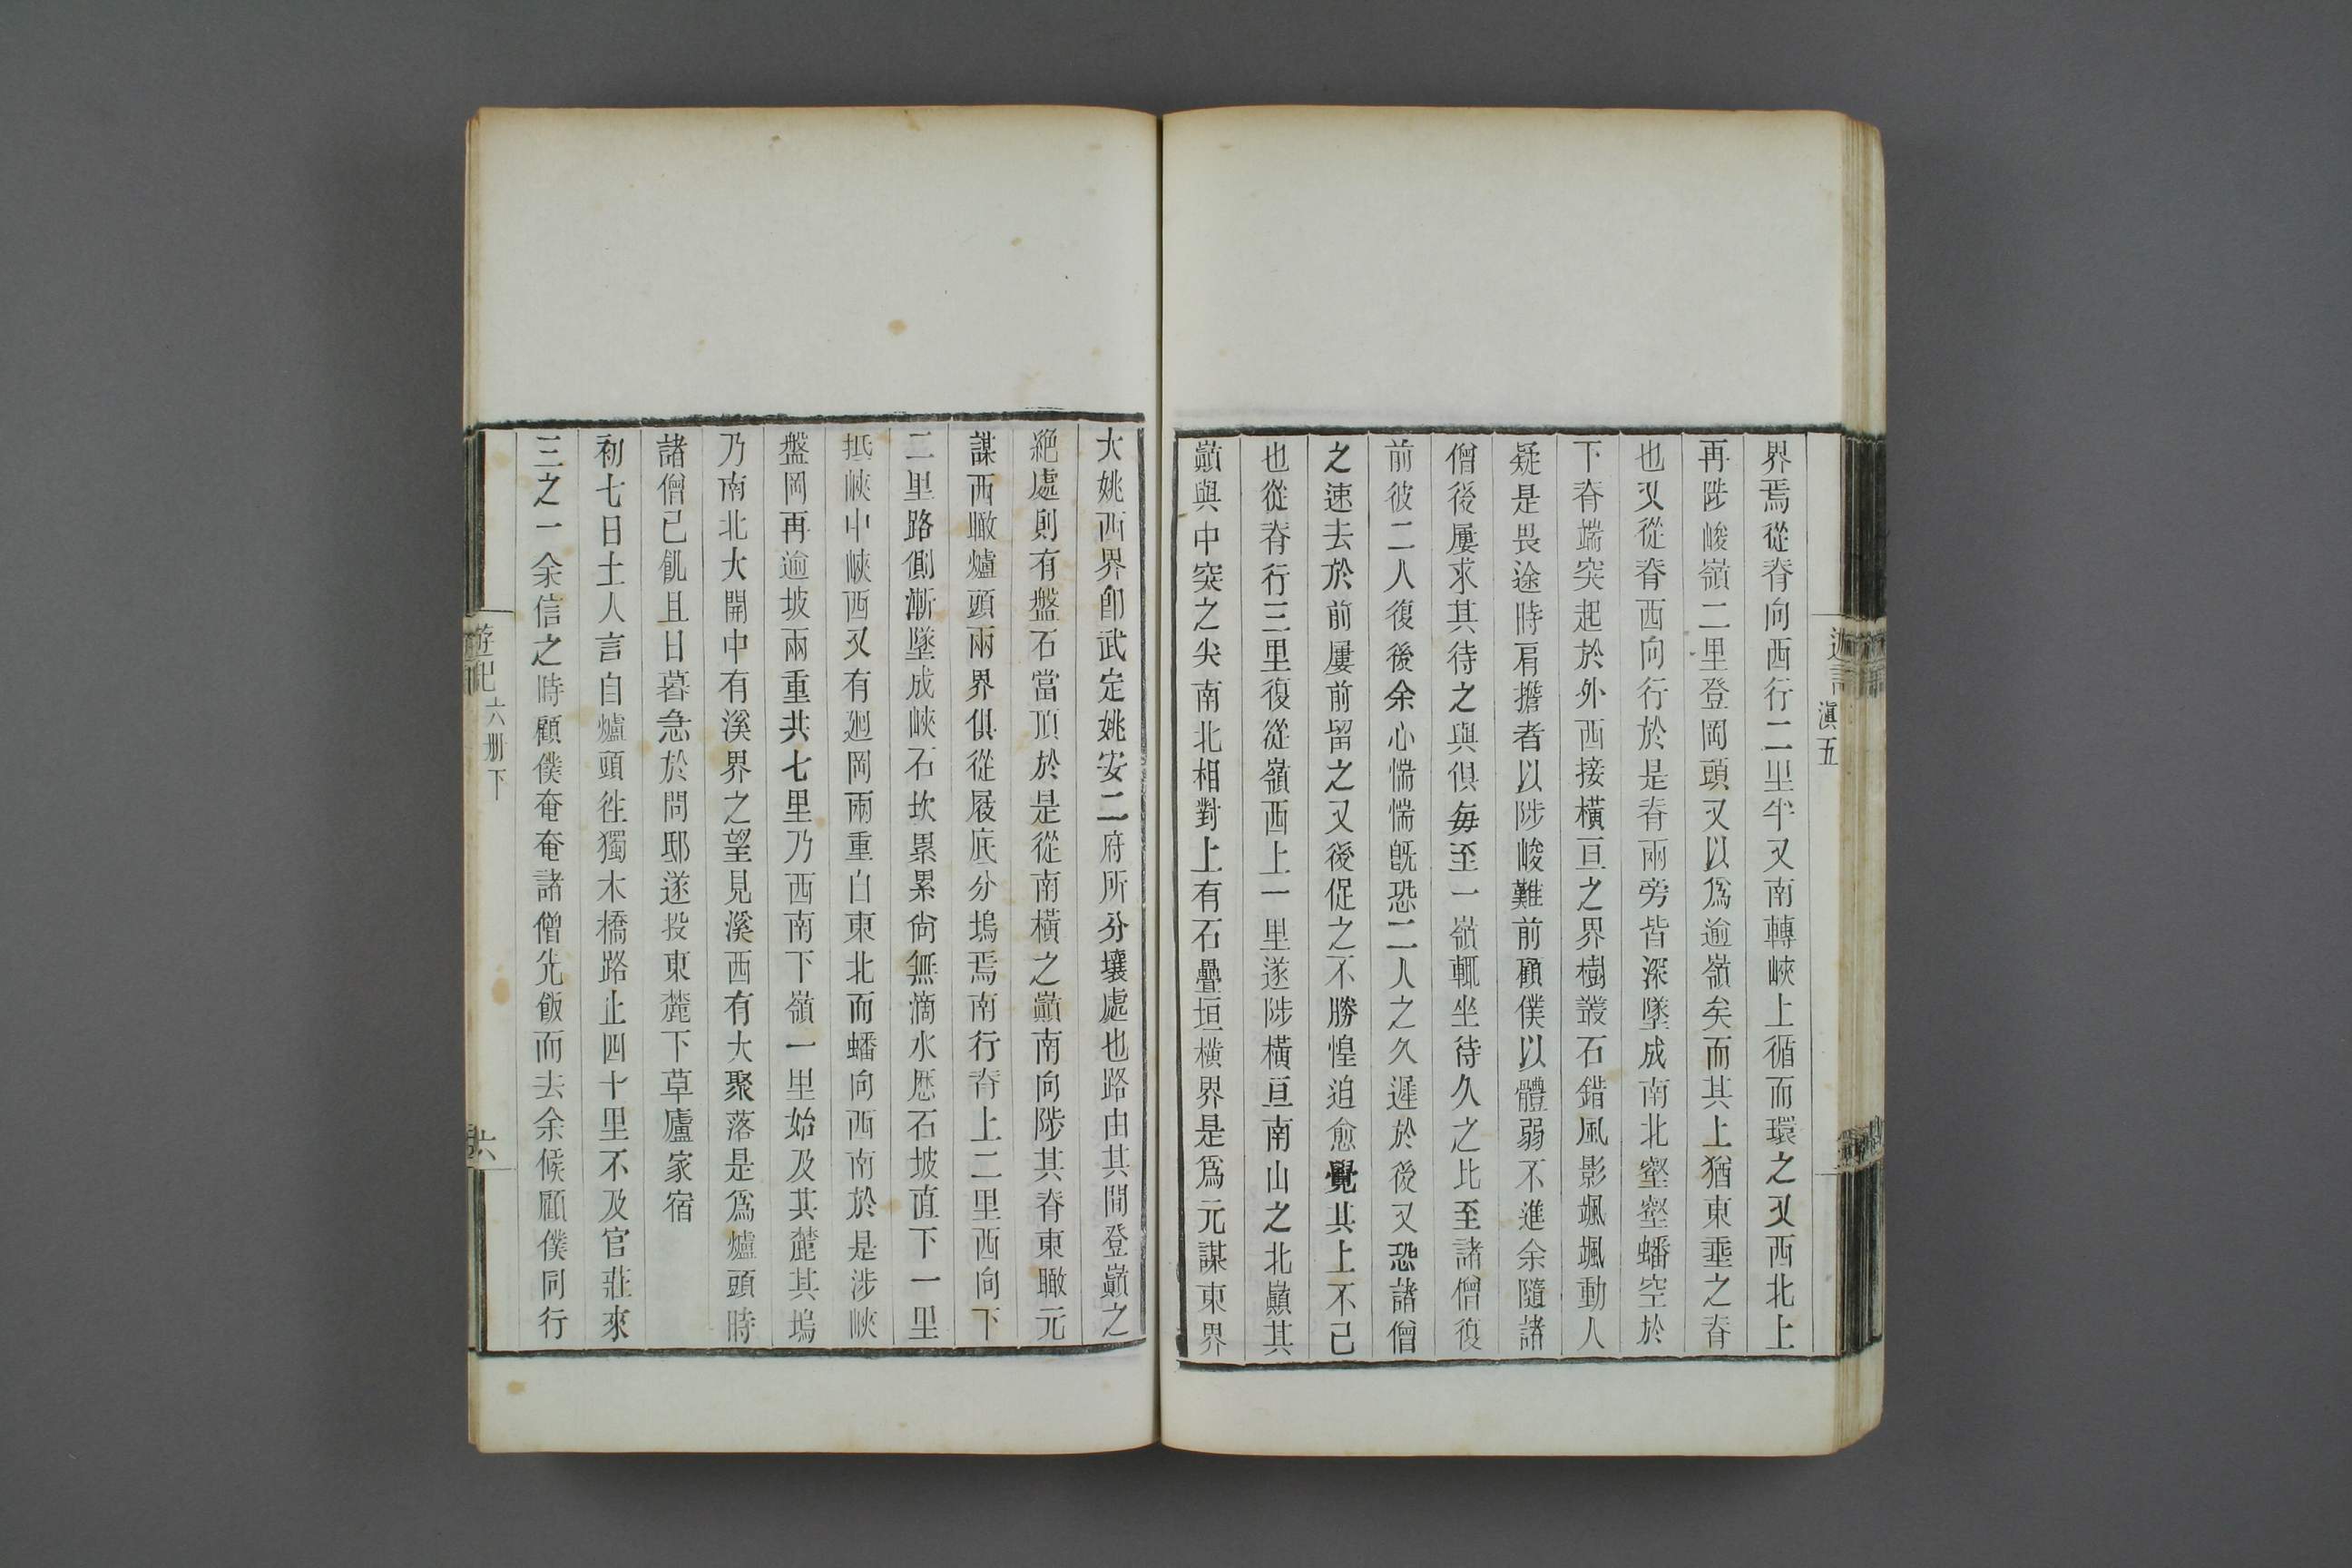 遊記
滇五
界焉從脊向西行二里半又南轉峽上循而環之又西北上
再陟峻嶺二里登岡頭又以爲逾嶺矣而其上猶東垂之脊
也又從脊西向行於是脊兩旁皆深墜成南北壑壑蟠空於
下脊端突起於外西接橫亘之界樹叢石錯風影颯颯動人
疑是畏途時肩擔者以陟峻難前顧僕以體弱不進余隨諸
僧後屢求其待之與俱每至一嶺輒坐待久之比至諸僧復
前彼二人復後余心惴惴旣恐二人之久遲於後又恐諸僧
之速去於前屢前留之又後促之不勝惶迫愈覺其上不已
也從脊行三里復從嶺西上一里遂陟橫亘南山之北巔其
巔與中突之尖南北相對上有石疊垣橫界是爲元謀東界
大姚西界卽武定姚安二府所分壤處也路由其間登巔之
絕處則有盤石當頂於是從南橫之巔南向陟其脊東瞰元
謀西瞰爐頭兩界俱從屐底分塢焉南行脊上二里西向下
二里路側漸墜成峽石坎累累尙無滴水歷石坡直下一里
抵峽中峽西又有迴岡兩重自東北而蟠向西南於是涉峽
盤岡再逾坡兩重共七里乃西南下嶺一里始及其麓其塢
乃南北大開中有溪界之望見溪西有大聚落是爲爐頭時
諸僧已飢且日暮急於問邸遂投東麓下草廬家宿
初七日土人言自爐頭往獨木橋路止四十里不及官莊來
三之一余信之時顧僕奄奄諸僧先飯而去余候顧僕同行
遊記
六册下
六